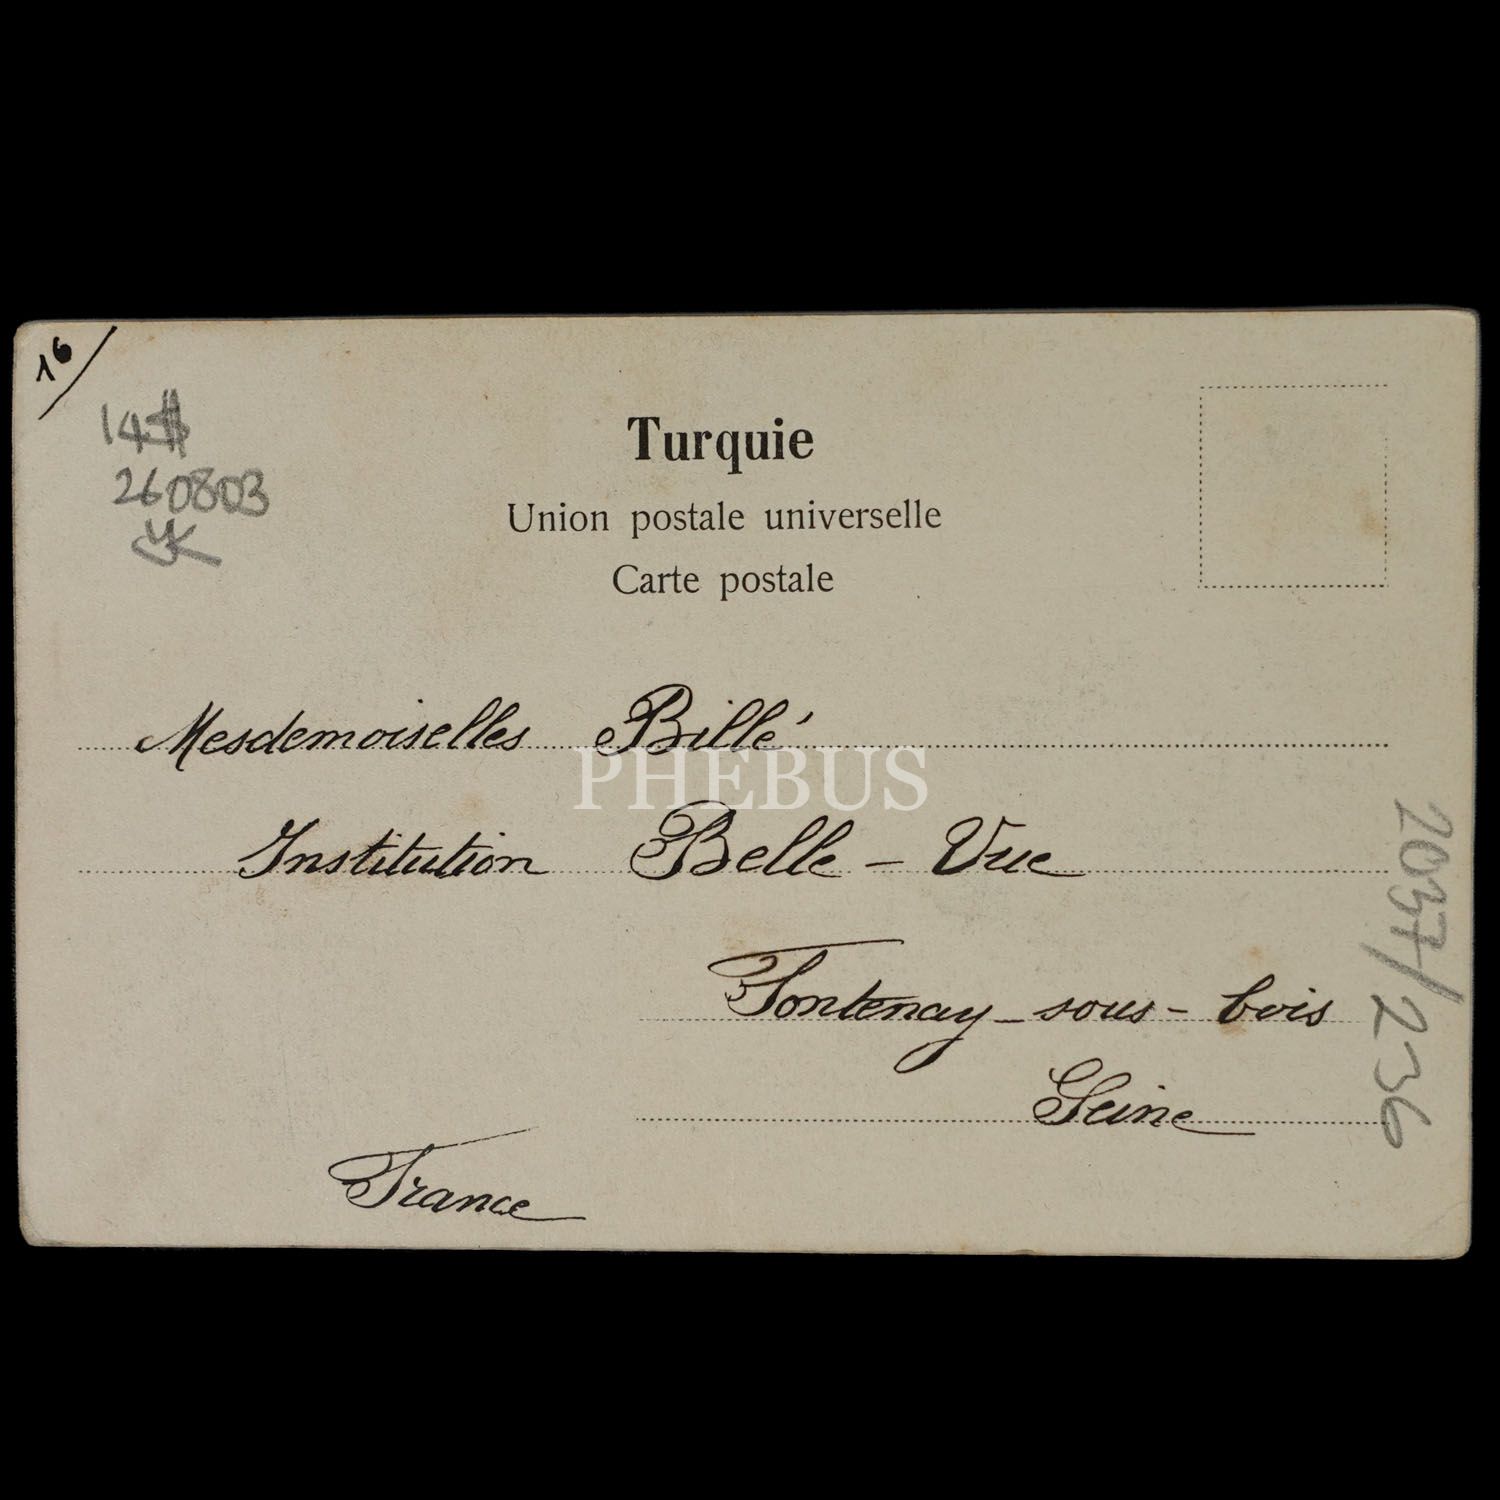 16/
14$
260803
Turquie
Union postale universelle
Carte postale
Mesdemoiselles Billé
PHEBUS
Institution Belle-Vue
Fontenay-sous-bois
Seine
France
2037/236